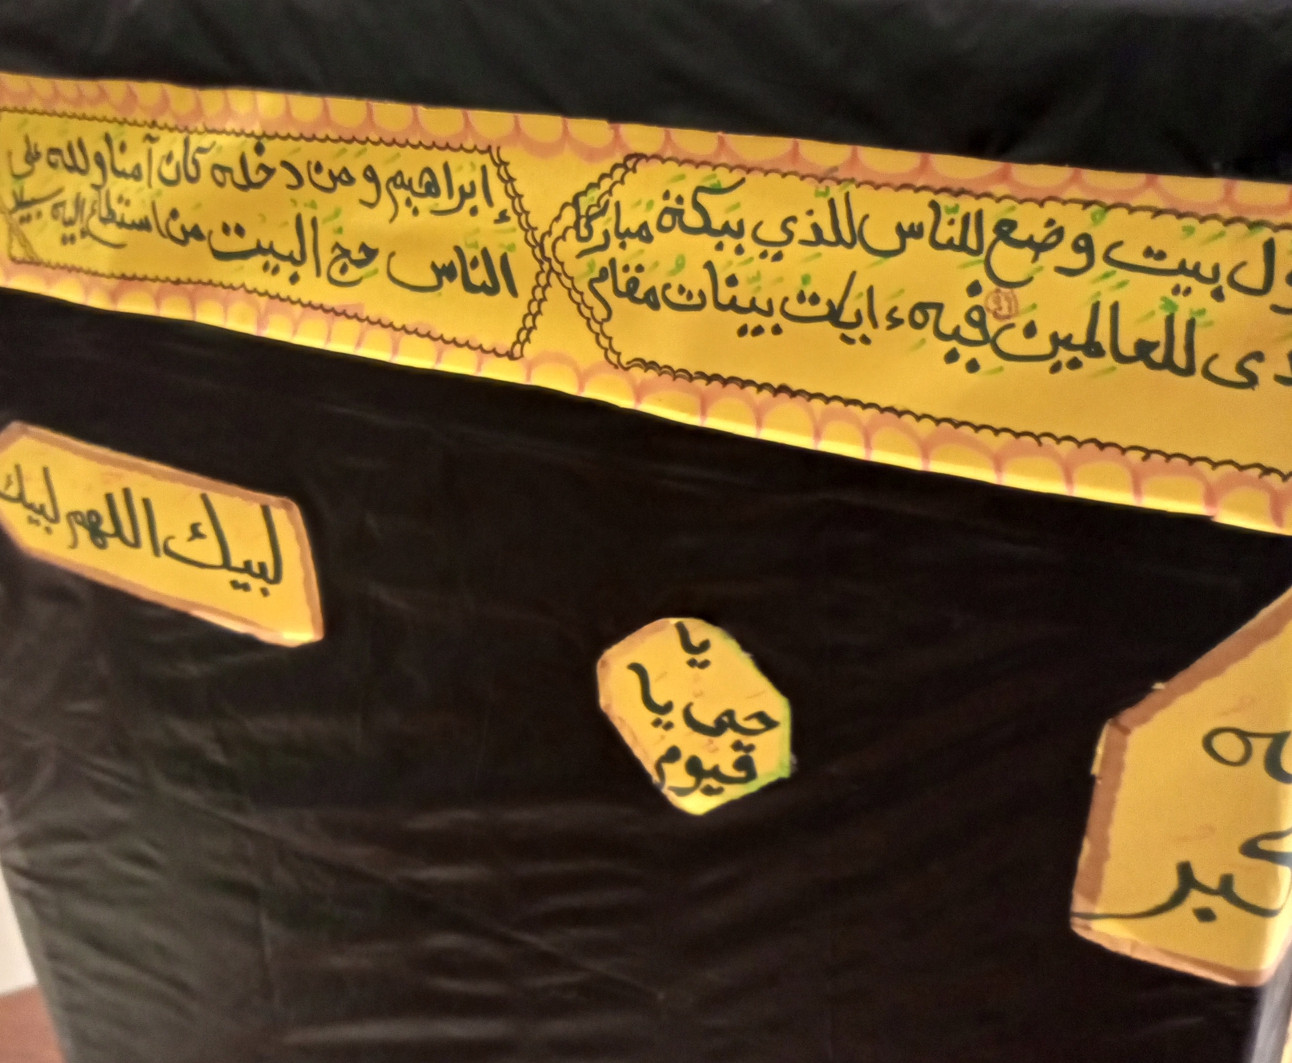 ول بيت وضع للنّاس للذي ببكة مباركا
دى للعالمين ٩٦ فيه ءايات بيّنات مقام
إبراهيم ومن دخله كان آمنا ولله على
الناس حج البيت من استطاع إليه سبيلا
لبيك اللهم لبيك
يا
حي يا
قيوم
ـه
ـكبر